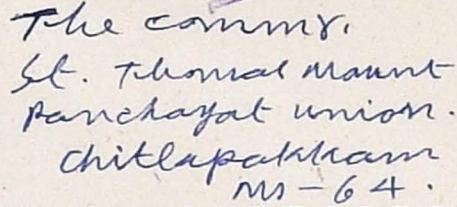 The commr.
St. Thomas Mount
Panchayat union.
Chitlapakkam
Ms - 64.